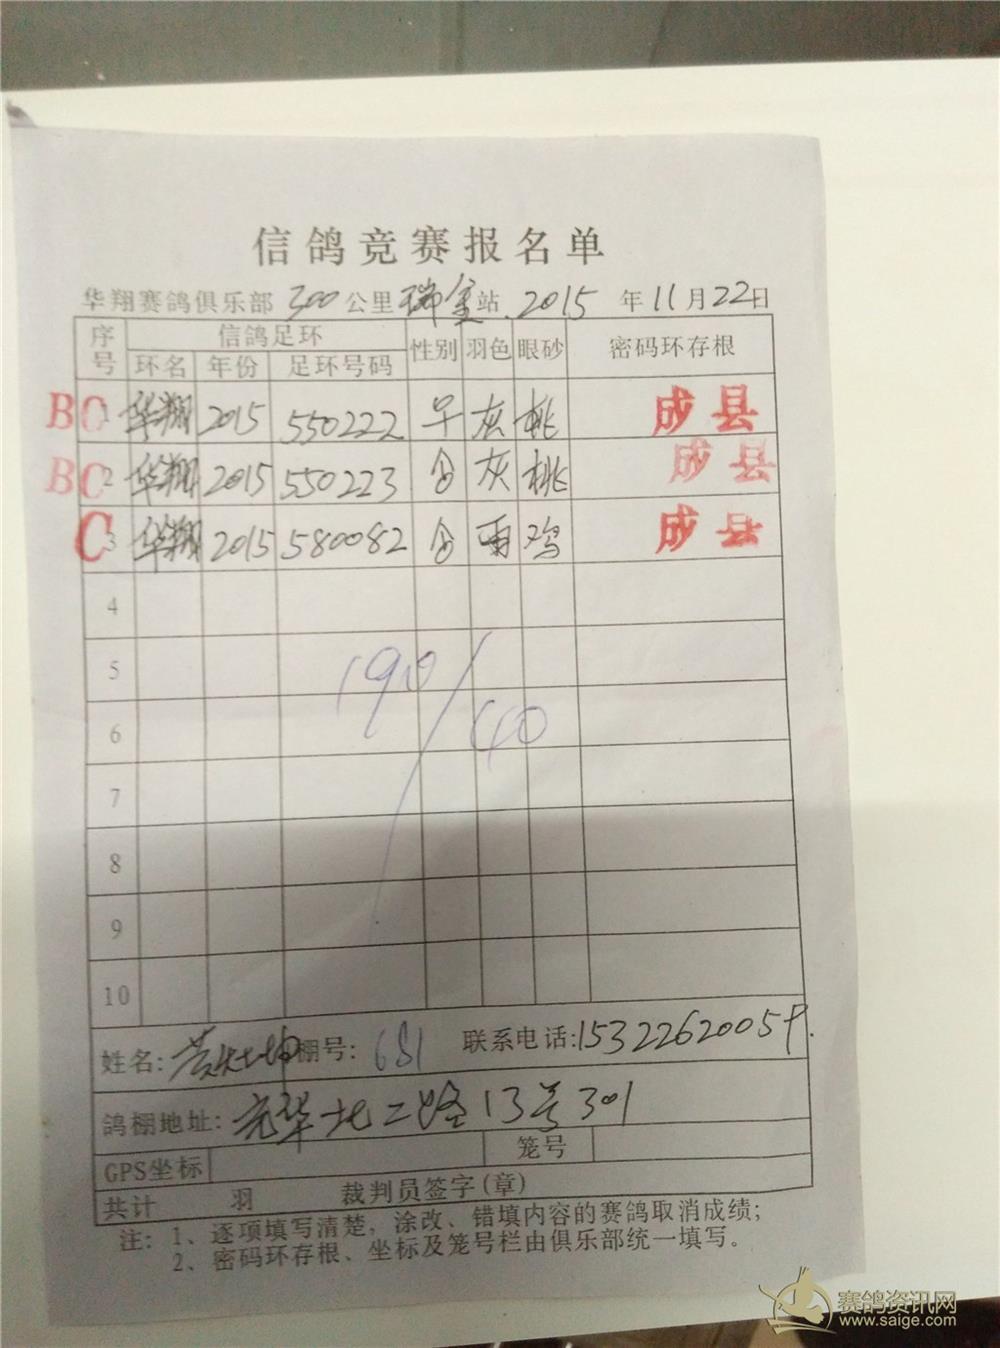 信鸽竞赛报名单
华翔赛鸽俱乐部 300 公里 瑞金 站. 2015 年 11 月 22 日
序号 信鸽足环 性别 羽色 眼砂 密码环存根
环名 年份 足环号码
BC 1 华翔 2015 550222 灰 桃 成县
BC 2 华翔 2015 550223 灰 桃 成县
C 3 华翔 2015 580082 雨 鸡 成县
4
5
190/40
6
7
8
9
10
姓名: 黄 坤 棚号: 681 联系电话:15322620059.
鸽棚地址: 华北二路13号301
GPS坐标 笼号
共计 羽 裁判员签字(章)
注: 1、逐项填写清楚，涂改、错填内容的赛鸽取消成绩;
2、密码环存根、坐标及笼号栏由俱乐部统一填写。
赛鸽资讯网
www.saige.com